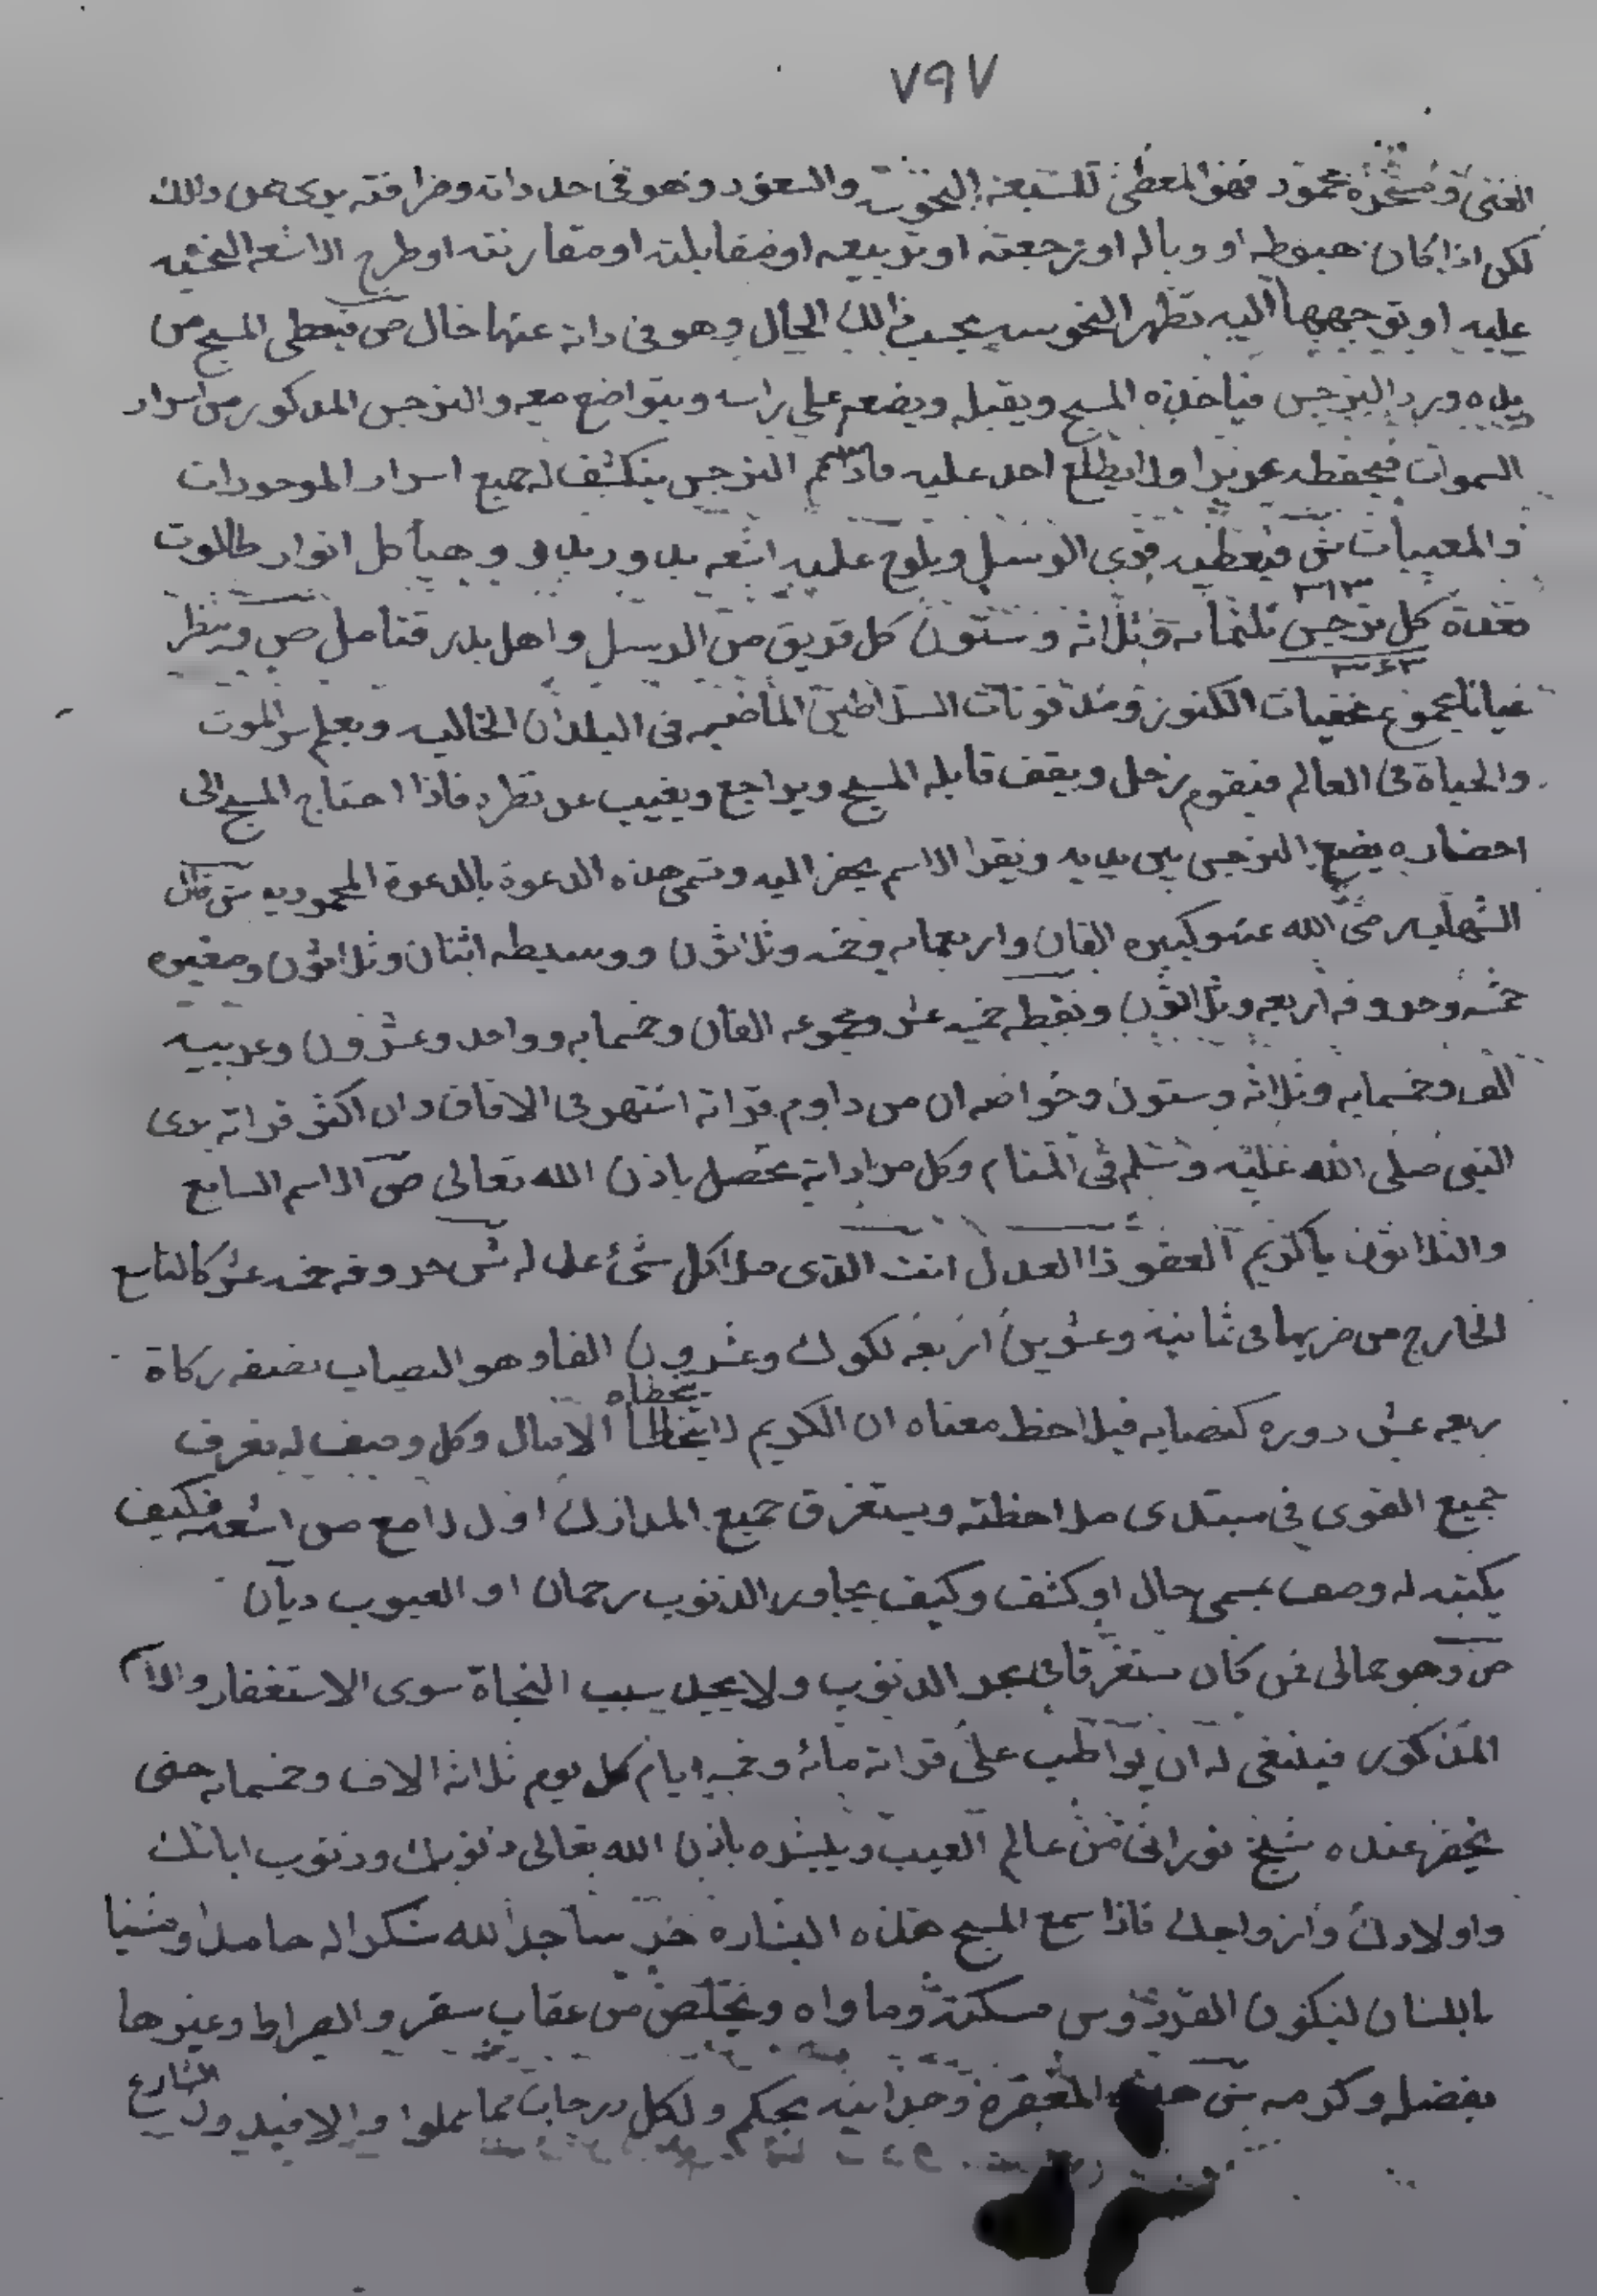 ٧٩٧
الغنى ومسخره محمود فهو المعطى للسبعة النحوت والسعود وهو فى حد ذاته وصرافته برى من ذالك
لكن اذا كان هبوطه او وباله او رجعته او تربيعه او مقابلته او مقارنته او طرح الاشعه النحسيه
عليه او توجهها اليه تظهر النحوسه بحسب ذالك الحال وهو فى ذاته عنها خال ص فيعطى المسبح من
يده ورد النرجس فياخذه المسبح ويقبله ويضعه على راسه ويتواضع معه والنرجس المذكور من اسرار
السموات فيحفظه عزيزا ولا يطلع احد عليه فاذا شم النرجس ينكشف له جميع اسرار الموجودات
والمغيبات ش فيعطيه قوى الرسل ويلوح عليه اشعه بدور بدر وهياكل انوار طالوت
فعدة كل نرجس ثلثمائه وثلاثه وستون كل فريق من الرسل واهل بدر فتامل ص وينظر
٣١٣
٣٦٣
عيانا بمجموع مخفيات الكنوز ومدفونات السلاطين الماضيه فى البلدان الخاليه ويعلم سر الموت
والحياة فى العالم فيقوم زحل ويقف قابله المسبح ويراجع ويغيب عن نظره فاذا احتاج المسبح الى
احضاره يضع النرجس بين يديه ويقرا الاسم يحضر اليه وتسمى هذه الدعوة بالدعوة المحموديه ش قال
الشهاب رضى الله عنه وكبيره الفان واربعمايه وخمسه وثلاثون ووسيطه اثنان وثلاثون وصغيره
خمسه وحروفه اربعه وثلاثون ونقطه خمسه عشر ومجموعه الفان وخمسمايه وواحد وعشرون وعربيه
الف وخمسمايه وثلاثه وستون وخواصه ان من داوم قراته اشتهر فى الافاق وان اكثر قراته يرى
النبى صلى الله عليه وسلم فى المنام وكل مراداته تحصل باذن الله تعالى ص الاسم السابع
والثلاثون يا كريم العفو ذا العدل انت الذى ملا كل شئ عدله ش حروفه خمسه عشر كالتاسع
الخارج من ضربها فى ثمانية وعشرين اربعه لكوك وعشرون الفا وهو النصاب نصفه زكاة
ربعه عشر دوره كنصابه فيلاحظ معناه ان الكريم لا تتخطاه الآمال وكل وصف له يغرق
جميع القوى فى مبتدى ملاحظته ويستغرق جميع المدارك اول لامع من اشعه فكيف
يكتبه له وصف بمسمى حال او كشف وكيف يجاور الذنوب رحمان او العيوب ديان
ص وهو جمالى فمن كان مستغرقا فى بحر الذنوب ولا يجد سبب النجاة سوى الاستغفار والاسم
المذكور فينبغى له ان يواظب على قراته مائه وخمسه ايام كل يوم ثلاثة الاف وخمسمايه حتى
يحضر عنده شيخ نورانى من عالم الغيب ويبشره باذن الله تعالى ذنوبك وذنوب ابائك
واولادك وازواجك فاذا سمع المسبح هذه البشاره خر ساجدا لله شكرا له حامدا ومثنيا
باللسان ليكون الفردوس مسكنه وماواه ويتخلص من عقاب سقر والصراط وغيرها
بفضله وكرمه ش هذه المغفرة وحدانيه بحكم ولكل درجات مما عملوا والا فيلزم ولا الشارع